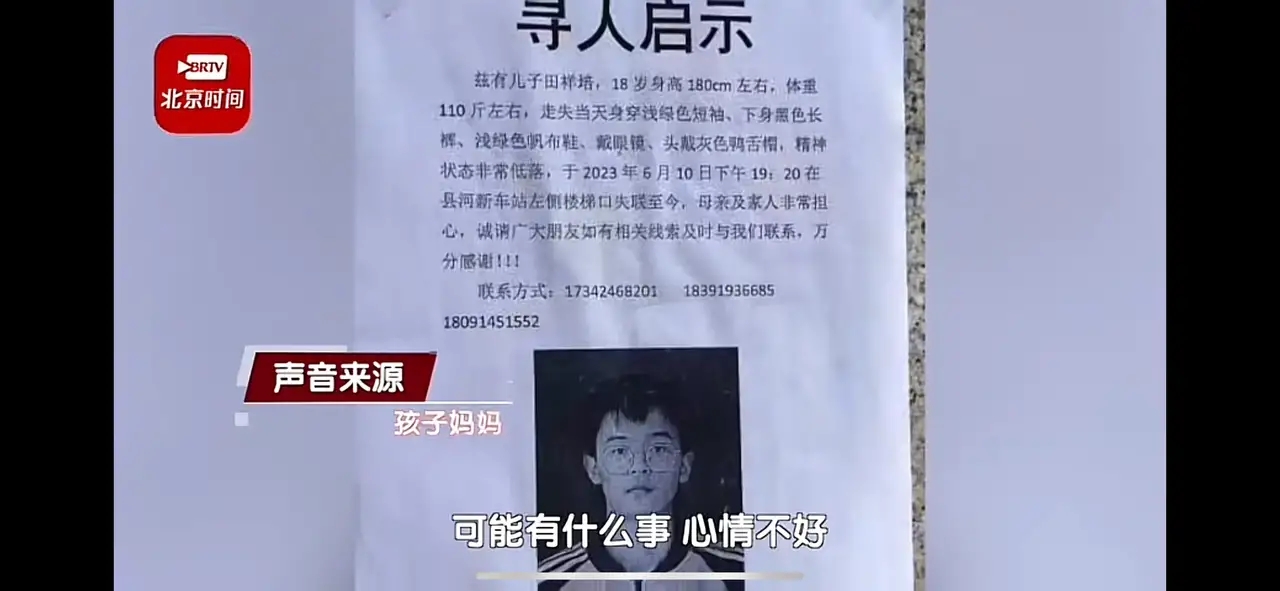 寻人启示
BRTV
北京时间
兹有儿子田祥培，18 岁身高 180cm 左右，体重
110 斤左右，走失当天身穿浅绿色短袖、下身黑色长
裤、浅绿色帆布鞋、戴眼镜、头戴灰色鸭舌帽，精神
状态非常低落，于 2023 年 6 月 10 日下午 19：20 在
县河新车站左侧楼梯口失联至今，母亲及家人非常担
心，诚请广大朋友如有相关线索及时与我们联系，万
分感谢！！！
联系方式：17342468201 18391936685
18091451552
声音来源
孩子妈妈
可能有什么事 心情不好